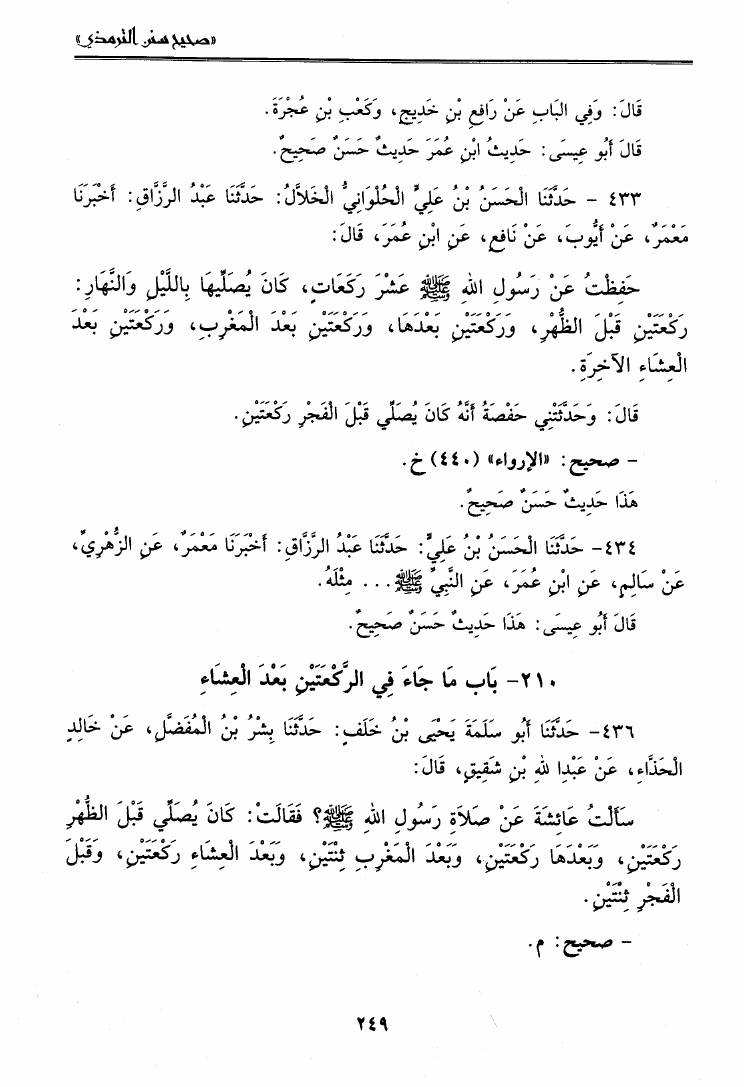 «صحيح سنن الترمذي»
قَالَ: وَفِي الْبَابِ عَنْ رَافِعِ بْنِ خَدِيجٍ، وَكَعْبِ بْنِ عُجْرَةَ.
قَالَ أَبُو عِيسَى: حَدِيثُ ابْنِ عُمَرَ حَدِيثٌ حَسَنٌ صَحِيحٌ.
٤٣٣ - حَدَّثَنَا الْحَسَنُ بْنُ عَلِيٍّ الْحُلْوَانِيُّ الْخَلاَّلُ: حَدَّثَنَا عَبْدُ الرَّزَّاقِ: أَخْبَرَنَا
مَعْمَرٌ، عَنْ أَيُّوبَ، عَنْ نَافِعٍ، عَنِ ابْنِ عُمَرَ، قَالَ:
حَفِظْتُ عَنْ رَسُولِ اللهِ ﷺ عَشْرَ رَكَعَاتٍ، كَانَ يُصَلِّيهَا بِاللَّيْلِ وَالنَّهَارِ:
رَكْعَتَيْنِ قَبْلَ الظُّهْرِ، وَرَكْعَتَيْنِ بَعْدَهَا، وَرَكْعَتَيْنِ بَعْدَ الْمَغْرِبِ، وَرَكْعَتَيْنِ بَعْدَ
الْعِشَاءِ الآخِرَةِ.
قَالَ: وَحَدَّثَتْنِي حَفْصَةُ أَنَّهُ كَانَ يُصَلِّي قَبْلَ الْفَجْرِ رَكْعَتَيْنِ.
- صحيح: «الإرواء» (٤٤٠) خ.
هَذَا حَدِيثٌ حَسَنٌ صَحِيحٌ.
٤٣٤- حَدَّثَنَا الْحَسَنُ بْنُ عَلِيٍّ: حَدَّثَنَا عَبْدُ الرَّزَّاقِ: أَخْبَرَنَا مَعْمَرٌ، عَنِ الزُّهْرِيِّ،
عَنْ سَالِمٍ، عَنِ ابْنِ عُمَرَ، عَنِ النَّبِيِّ ﷺ... مِثْلَهُ.
قَالَ أَبُو عِيسَى: هَذَا حَدِيثٌ حَسَنٌ صَحِيحٌ.
٢١٠- بَاب مَا جَاءَ فِي الرَّكْعَتَيْنِ بَعْدَ الْعِشَاءِ
٤٣٦- حَدَّثَنَا أَبُو سَلَمَةَ يَحْيَى بْنُ خَلَفٍ: حَدَّثَنَا بِشْرُ بْنُ الْمُفَضَّلِ، عَنْ خَالِدٍ
الْحَذَّاءِ، عَنْ عَبْدِا للهِ بْنِ شَقِيقٍ، قَالَ:
سَأَلْتُ عَائِشَةَ عَنْ صَلاَةِ رَسُولِ اللهِ ﷺ؟ فَقَالَتْ: كَانَ يُصَلِّي قَبْلَ الظُّهْرِ
رَكْعَتَيْنِ، وَبَعْدَهَا رَكْعَتَيْنِ، وَبَعْدَ الْمَغْرِبِ ثِنْتَيْنِ، وَبَعْدَ الْعِشَاءِ رَكْعَتَيْنِ، وَقَبْلَ
الْفَجْرِ ثِنْتَيْنِ.
- صحيح: م.
٢٤٩